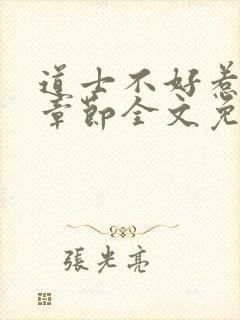 道士不好惹
章節全文免
張光亮